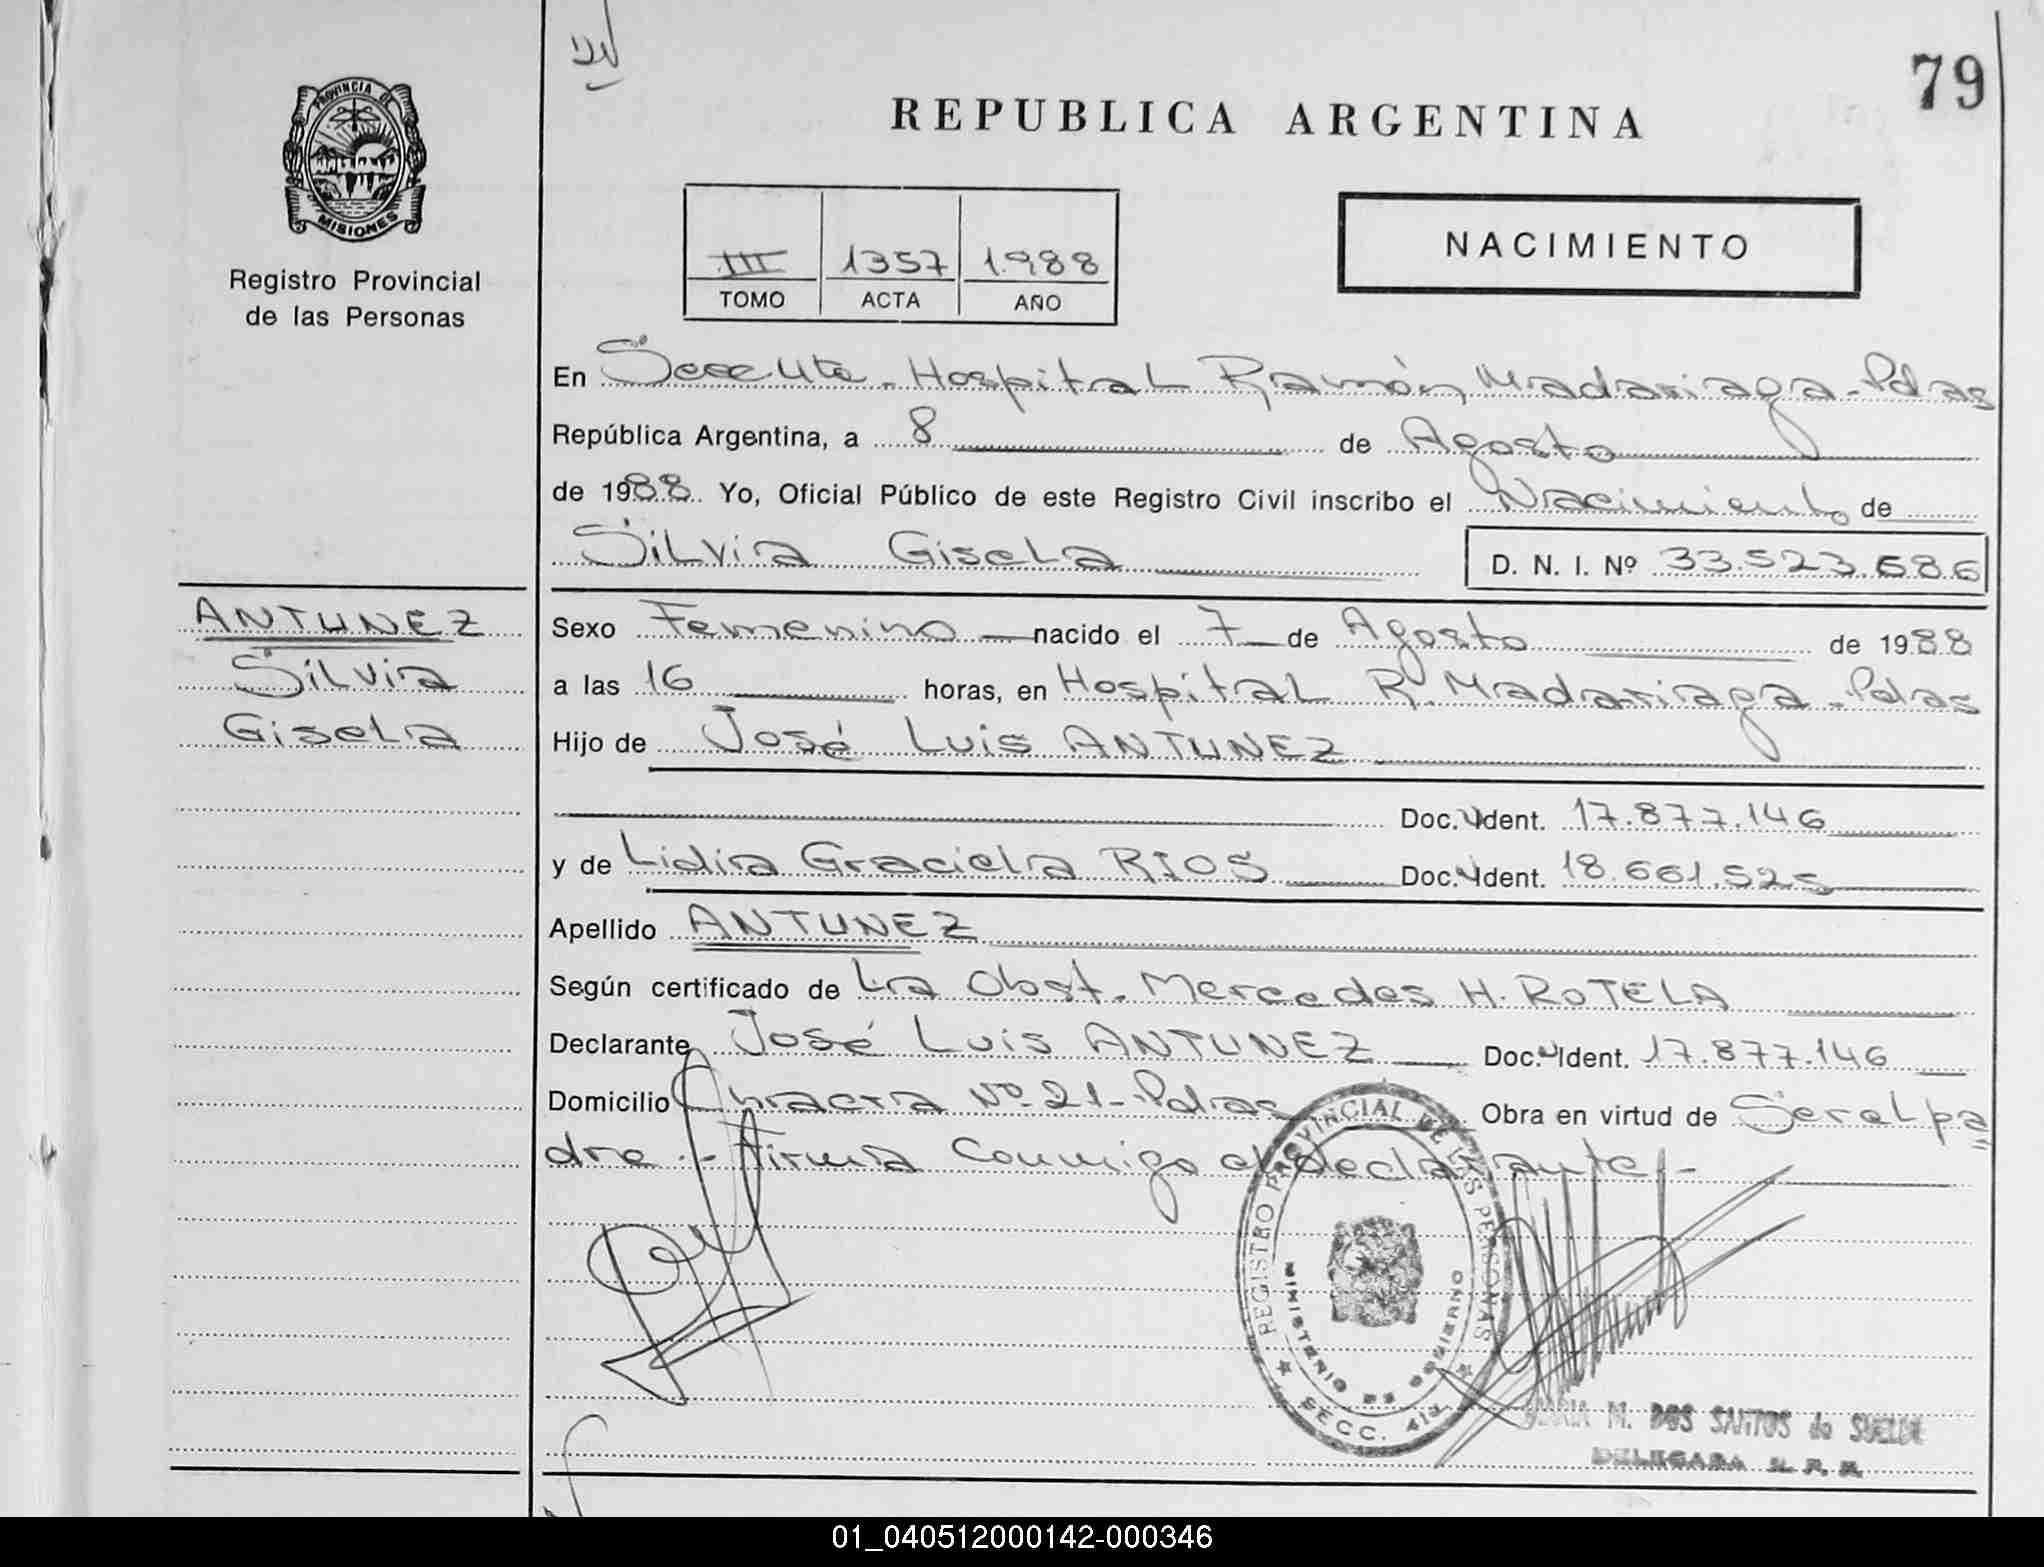 79
REPUBLICA ARGENTINA
PROVINCIA DE
MISIONES
Registro Provincial
de las Personas
III 1357 1.988
TOMO ACTA AÑO
NACIMIENTO
En Secc 4ta - Hospital Ramón Madariaga - Pdas
República Argentina, a 8 de Agosto
de 1988 Yo, Oficial Público de este Registro Civil inscribo el Nacimiento de
Silvia Gisela
D. N. I. Nº 33.523.686
ANTUNEZ
Silvia
Gisela
Sexo Femenino nacido el 7 de Agosto de 1988
a las 16 horas, en Hospital R. Madariaga - Pdas
Hijo de José Luis ANTUNEZ
Doc. Ident. 17.877.146
y de Lidia Graciela RIOS Doc. Ident. 18.661.525
Apellido ANTUNEZ
Según certificado de La Obst. Mercedes H. ROTELA
Declarante José Luis ANTUNEZ Doc. Ident. 17.877.146
Domicilio Chacra Nº 21 - Pdas Obra en virtud de Ser el pa
dre .- Firma Conmigo el declarante -
REGISTRO PROVINCIAL DE LAS PERSONAS
MINISTERIO DE GOBIERNO
SECC. 4ta
MARIA M. DOS SANTOS de
DELEGADA R. P. P.
01_040512000142-000346